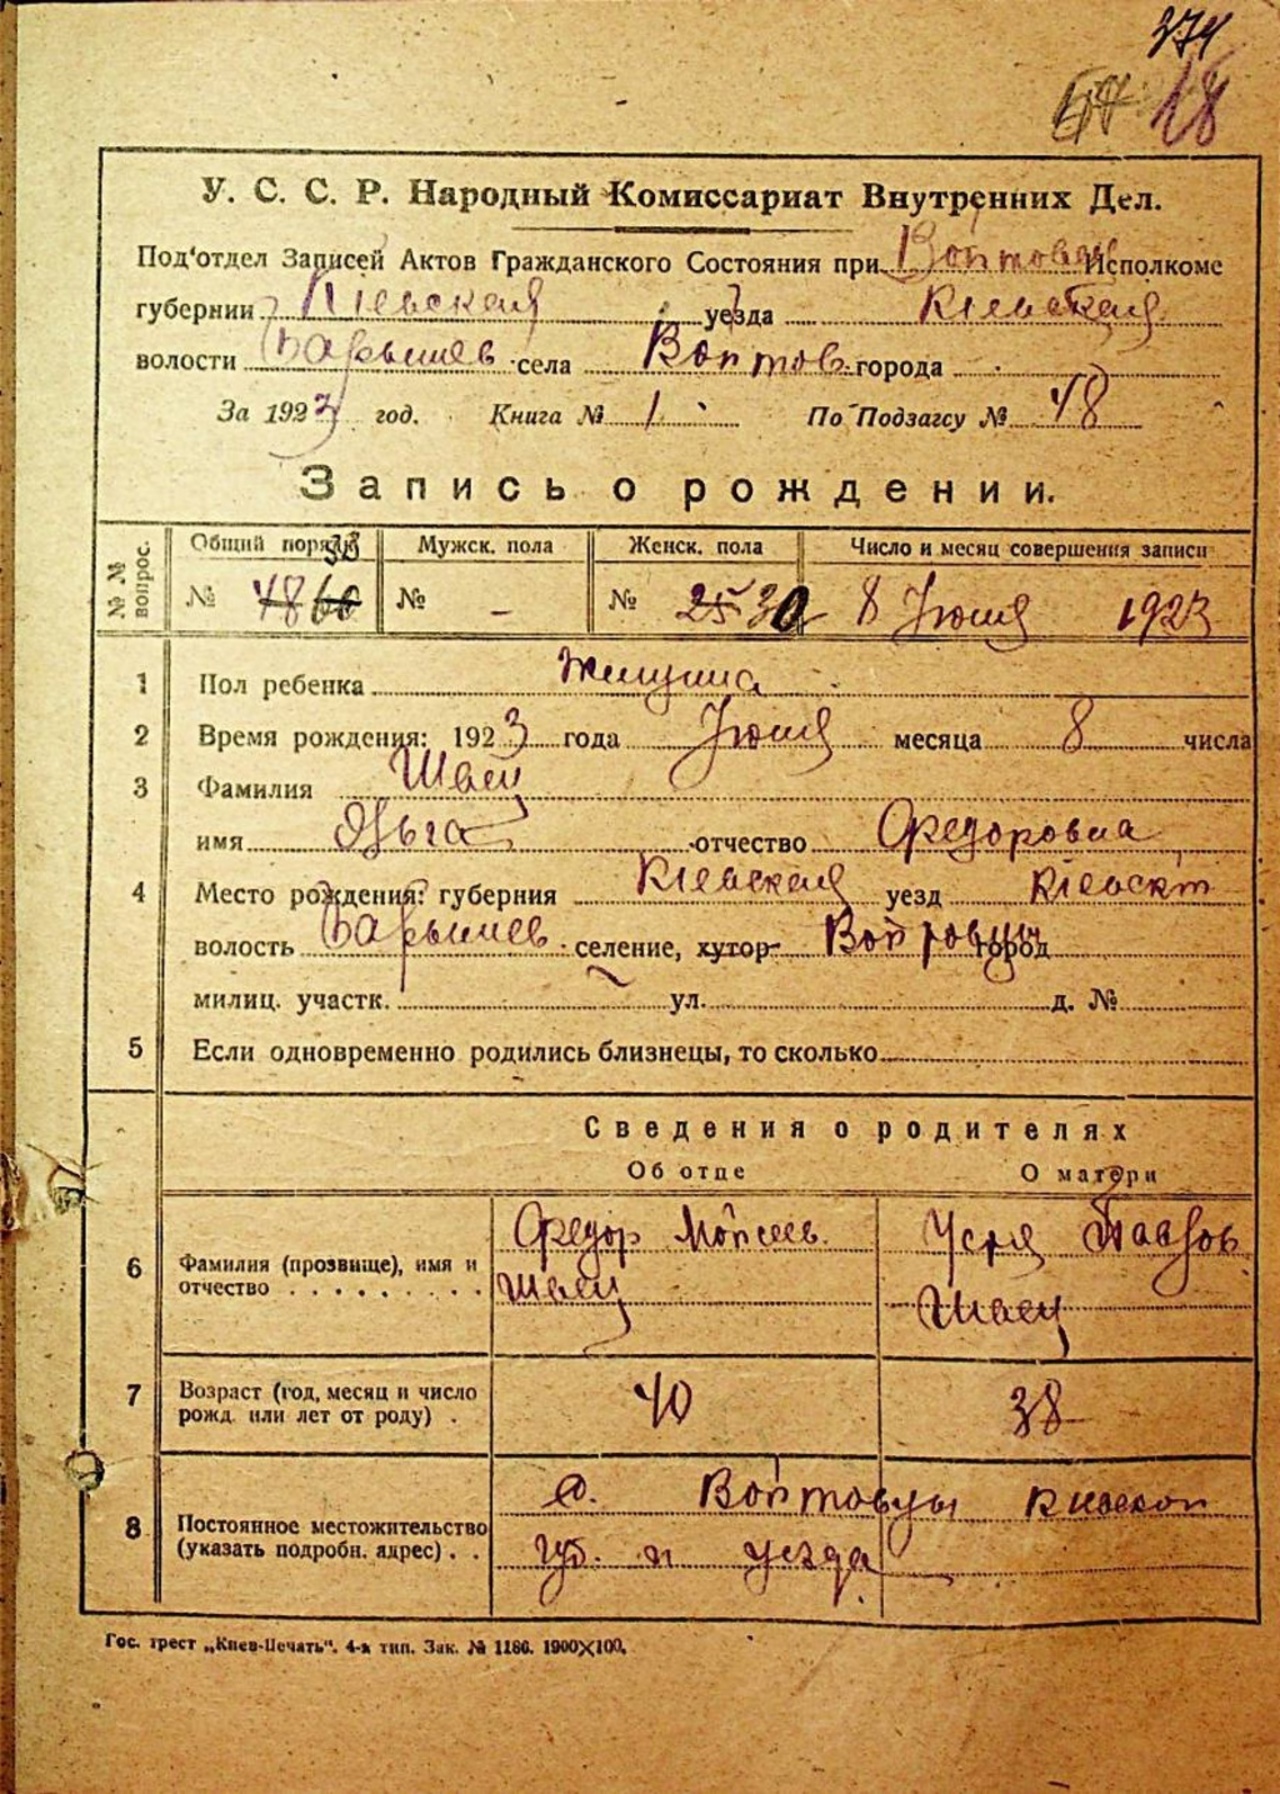 374
18
У. С. С. Р. Народный Комиссариат Внутренних Дел.
Под'отдел Записей Актов Гражданского Состояния при Войтовец Исполкоме
губернии Кіевская уезда Кіевская
волости Барышев села Войтов города
За 1923 год. Книга № 1 По Подзагсу № 48
Запись о рождении.
№ № вопрос. Общий поряд Мужск. пола Женск. пола Число и месяц совершения записи
№ 48 60 58 № – № 25 30 8 Июня 1923
1 Пол ребенка Женщина
2 Время рождения: 1923 года Июня месяца 8 числа
3 Фамилия Швец
имя Ольга отчество Федоровна
4 Место рождения: губерния Кіевская уезд Кіевск
волость Барышев селение, хутор Войтовцы город
милиц. участк. ул. д. №
5 Если одновременно родились близнецы, то сколько
Сведения о родителях
Об отце О матери
6 Фамилия (прозвище), имя и отчество Федор Мойсеев Швец Устя Павлов Швец
7 Возраст (год, месяц и число рожд. или лет от роду) 40 38
8 Постоянное местожительство (указать подробн. адрес) с. Войтовцы Киевской
губ. и уезда
Гос. трест „Киев-Печать". 4-я тип. Зак. № 1186. 1900×100.